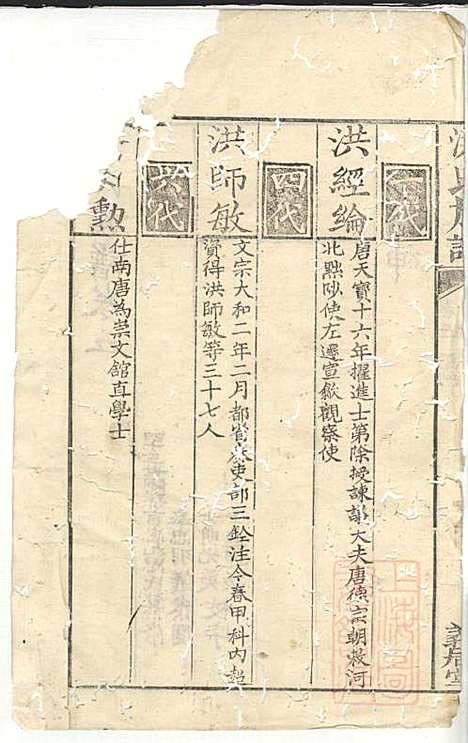 洪氏
一代
洪經綸
唐天寶十六年擢進士第除授諫議大夫唐德宗朝救河
北黜陟使左遷宣歙觀察使
四代
洪師敏
文宗大和二年二月都省 吏部三銓注今春甲科內超
資得洪師敏等三十七人
六代
勲
仕南唐為崇文館直學士